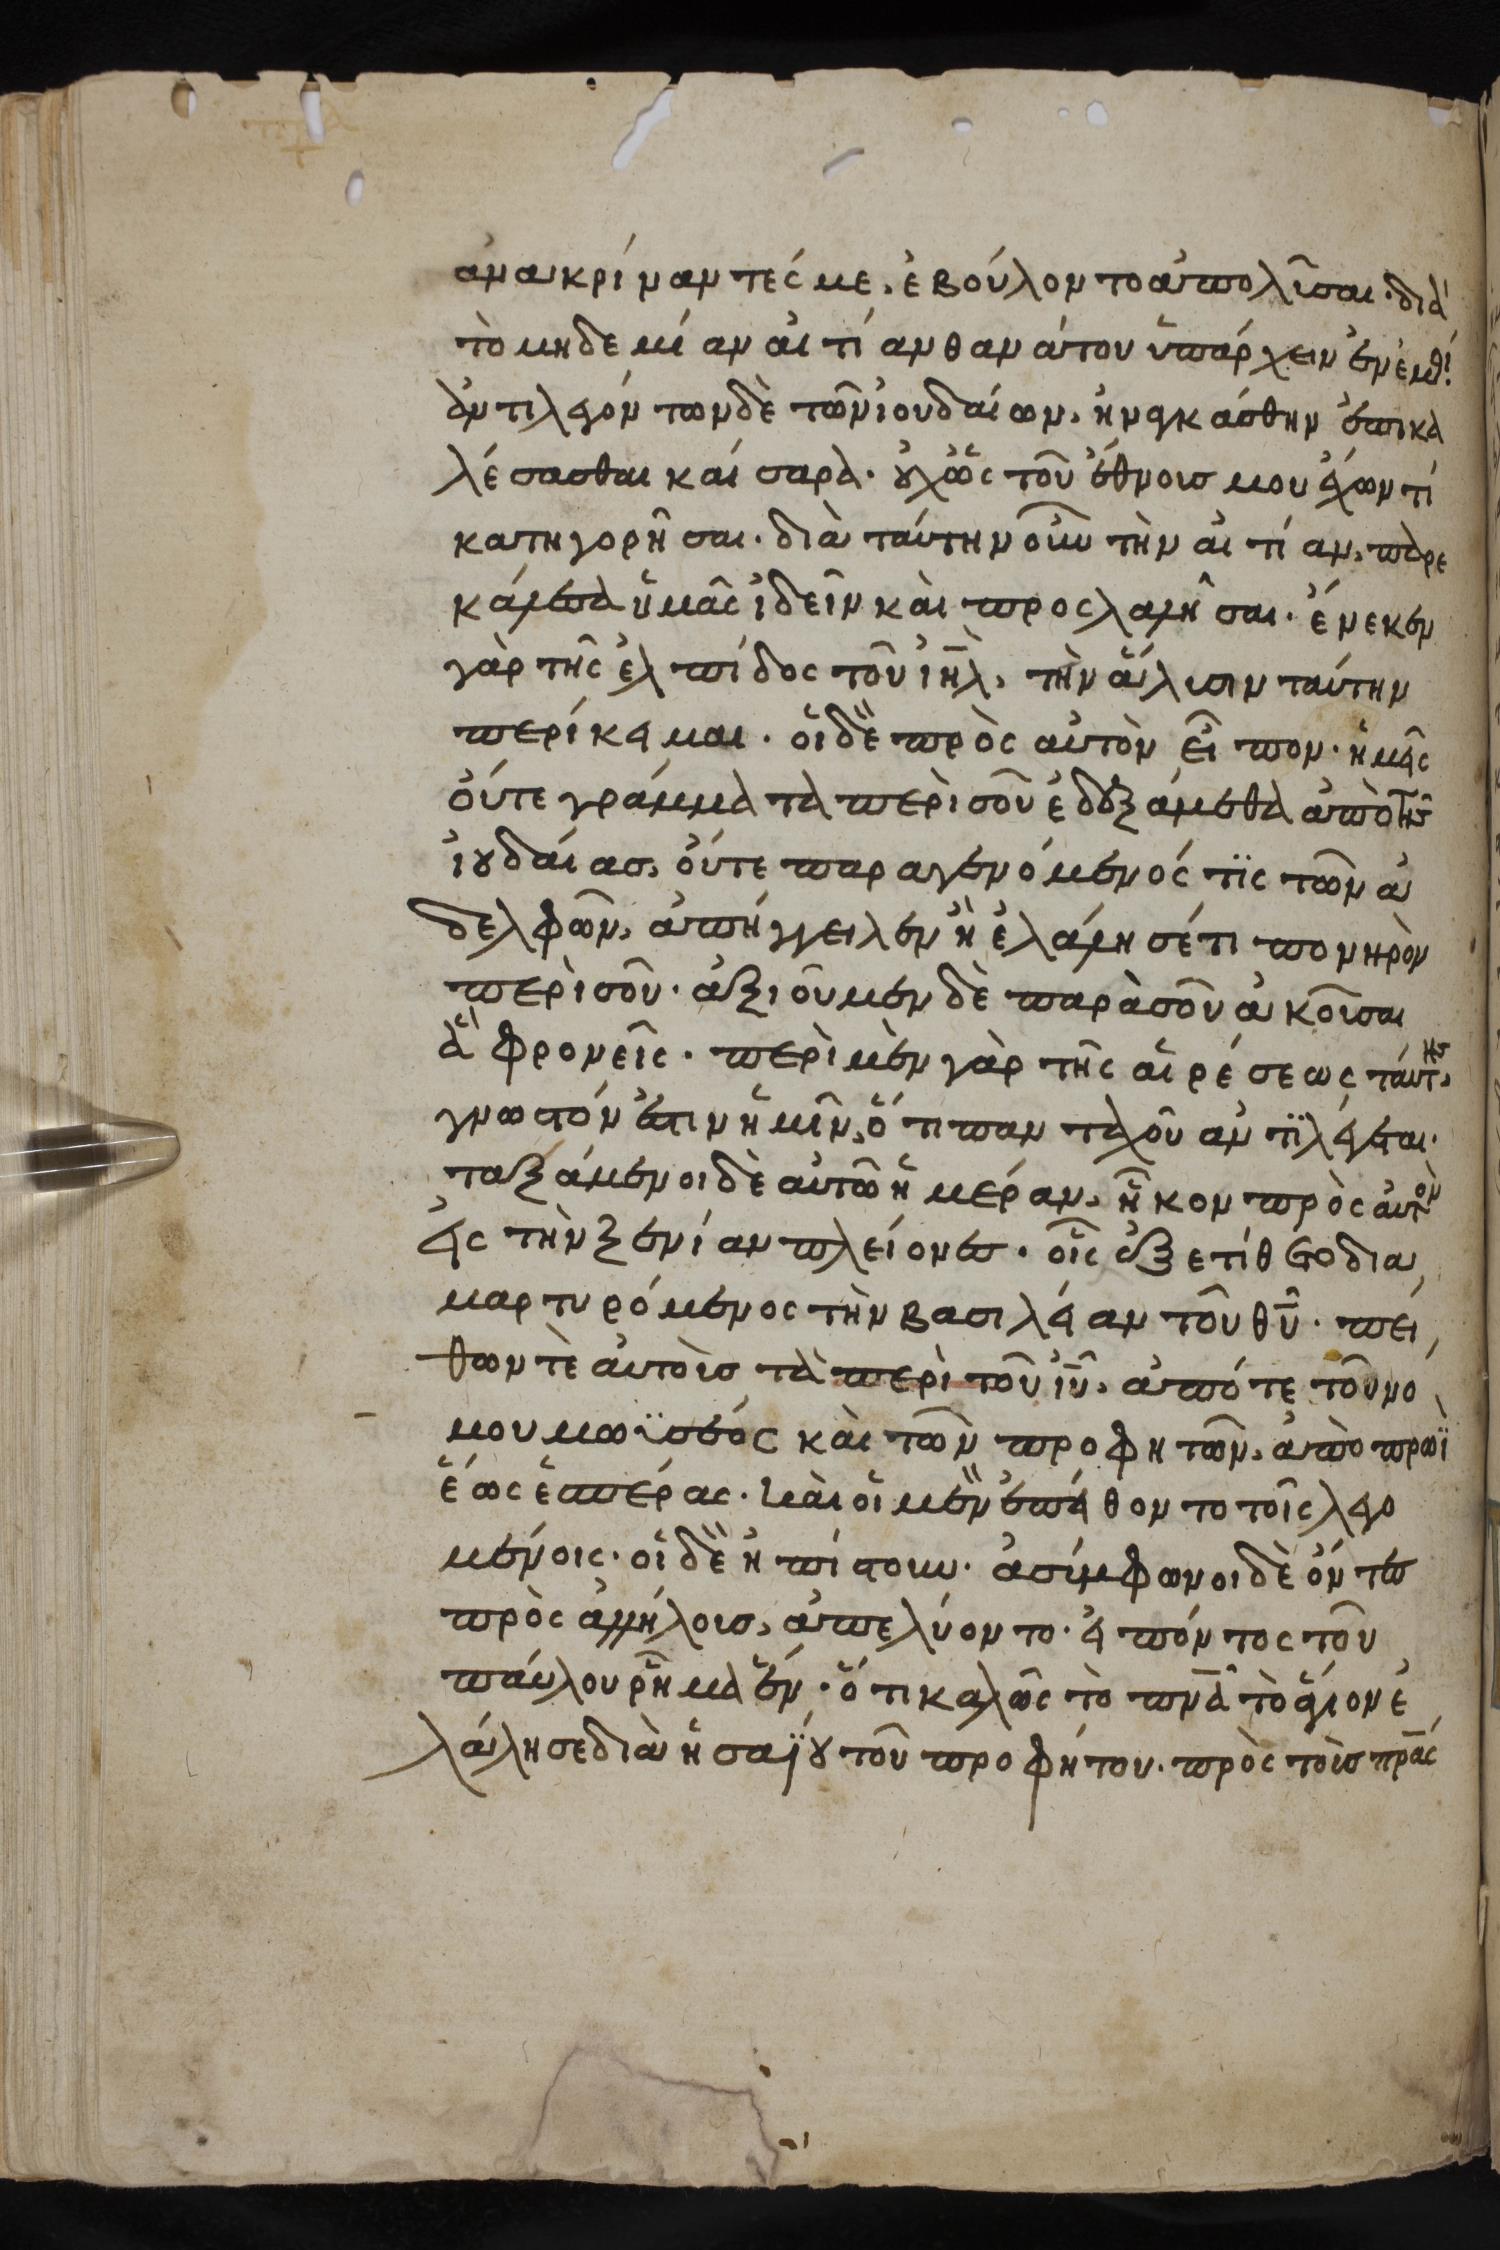 ἀνακρίναντές με, ἐβούλοντο ἀπολῦσαι· διὰ
τὸ μηδεμίαν αἰτίαν θανάτου ὑπάρχειν ἐν ἐμοί·
ἀντιλεγόντων δὲ τῶν ἰουδαίων, ἠναγκάσθην ἐπικα
λέσασθαι καίσαρα· οὐχ ὡς τοῦ ἔθνους μου ἔχων τί
κατηγορῆσαι· διὰ ταύτην οὖν τὴν αἰτίαν, παρε
κάλεσα ὑμᾶς ἰδεῖν καὶ προσλαλῆσαι· ἕνεκεν
γὰρ τῆς ἐλπίδος τοῦ ἰηλ, τὴν ἅλυσιν ταύτην
περίκειμαι· οἱ δὲ πρὸς αὐτὸν εἶπον· ἡμεῖς
οὔτε γράμματα περὶ σοῦ ἐδεξάμεθα ἀπὸ τῆς
ἰουδαίας, οὔτε παραγενόμενός τϊς τῶν ἀ
δελφῶν, ἀπήγγειλεν ἢ ἐλάλησέ τι πονηρὸν
περὶ σοῦ· ἀξιοῦμεν δὲ παρὰ σοῦ ἀκοῦσαι
ἃ φρονεῖς· περὶ μὲν γὰρ τῆς αἱρέσεως ταύτης,
γνωστόν ἐστιν ἡμῖν, ὅτι πανταχοῦ ἀντϊλέγεται·
ταξάμενοι δὲ αὐτῶ ἡμέραν, ἧκον πρὸς αὐτὸν
εἰς τὴν ξενίαν πλείονες· οἷς ἐξετίθετο δια
μαρτυρόμενος τὴν βασιλείαν τοῦ θυ· πεί
θων τὲ αὐτοὺς τὰ περὶ τοῦ ἰυ, ἀπό τε τοῦ νό
μου μωϊσέος καὶ τῶν προφητῶν, ἀπὸ πρωῒ
ἕως ἑσπέρας· καὶ οἱ μὲν ἐπείθοντο τοῖς λεγο
μένοις· οἱ δὲ ἠπίστουν· ἀσύμφωνοι δὲ ὄντες
πρὸς ἀλλήλους, ἀπελύοντο· εἰπόντος τοῦ
παύλου ῥῆμα ἕν· ὅτι καλῶς τὸ πνα τὸ ἅγιον ἐ
λάλησε διὰ ἡσαΐου τοῦ προφήτου· πρὸς τοὺς πρας